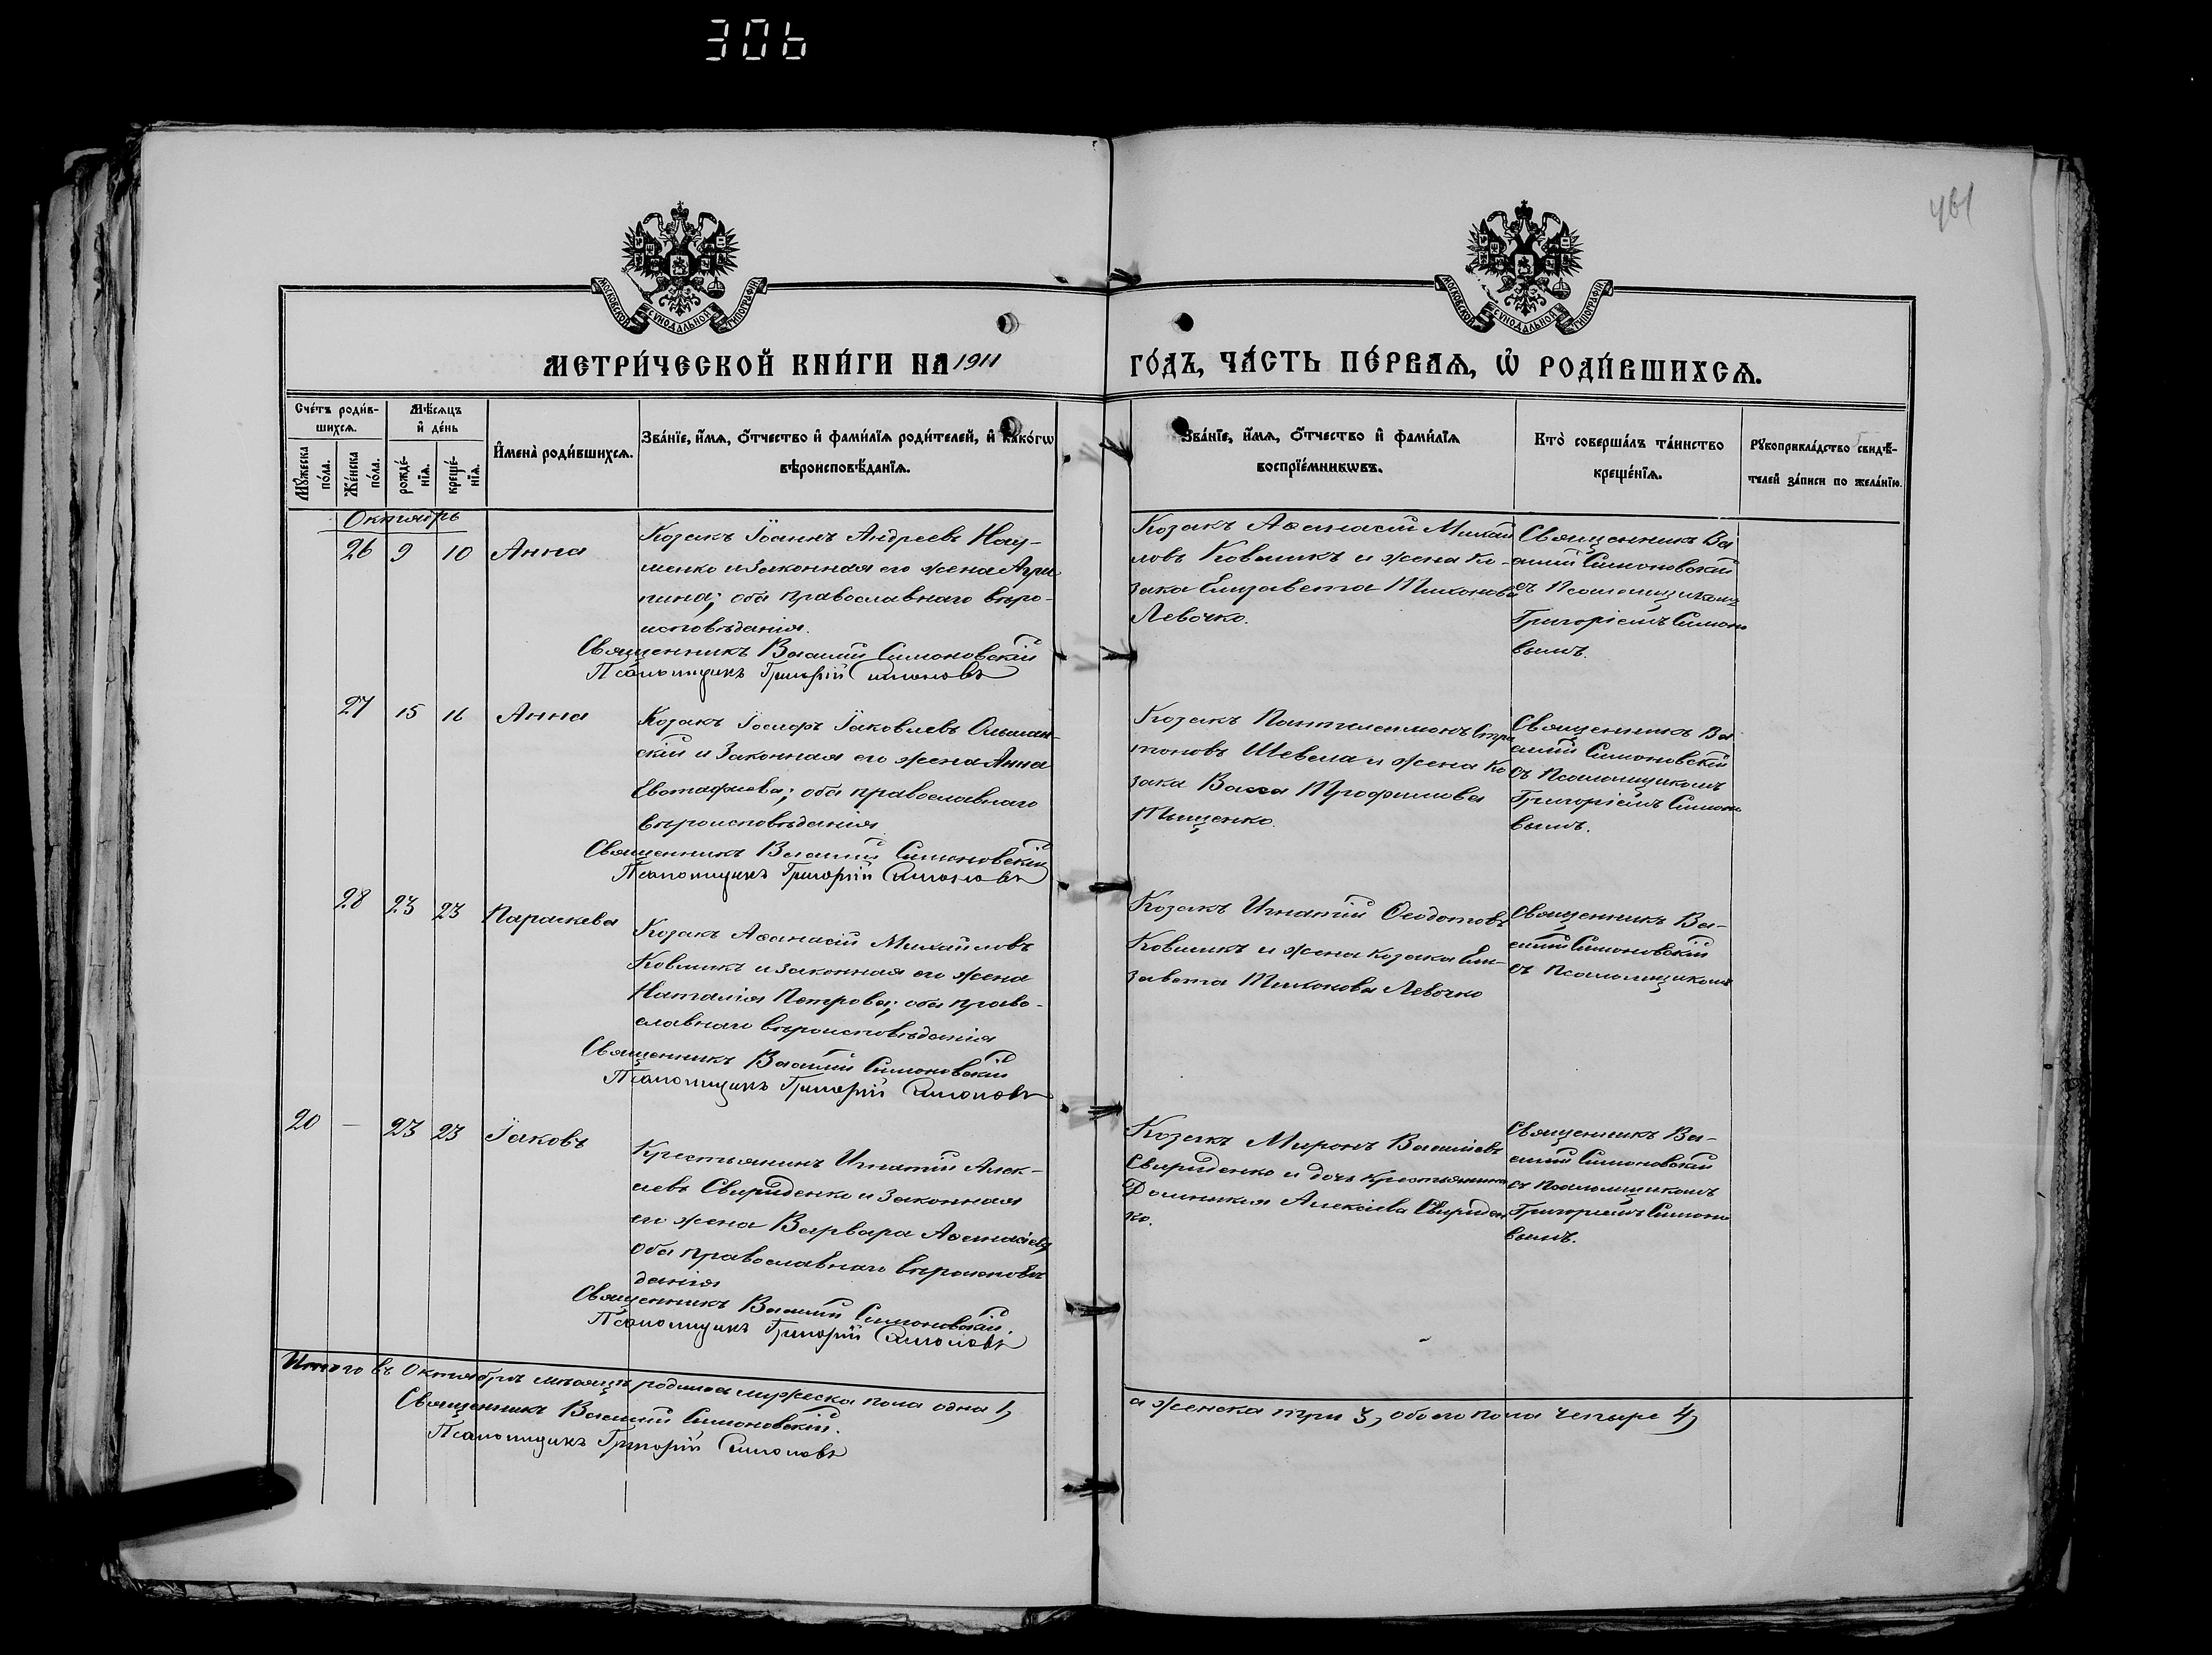 306
461
МОСКОВСКОЙ СѴНОДАЛЬНОЙ ТИПОГРАФІИ
МОСКОВСКОЙ СѴНОДАЛЬНОЙ ТИПОГРАФІИ
МЕТРИ́ЧЕСКОЙ КНИ́ГИ НА 1911
ГО́ДЪ, ЧА́СТЬ ПЕ́РВАѦ, Ѽ РОДИ́ВШИХСѦ.
Сче́тъ роди́в-
шихсѧ.
Мꙋ́жеска
по́ла.
Же́нска
по́ла.
Мѣ́сѧцъ
и҆ де́нь
рожде́-
нїѧ.
креще́-
нїѧ.
И҆мена̀ роди́вшихсѧ.
Зва́нїе, и҆́мѧ, ѻ҆́тчество и҆ фами́лїѧ роди́телей, и҆ како́гѡ
вѣроисповѣ́данїѧ.
Зва́нїе, и҆́мѧ, ѻ҆́тчество и҆ фами́лїѧ
воспрїе́мникѡвъ.
Кто̀ соверша́лъ та́инство
креще́нїѧ.
Рꙋкоприкла́дство свидѣ́-
телей за́писи по жела́нїю.
Октябрь
26 9 10 Анна
Козакъ Іоаннъ Андреевъ Нау-
менко и законная его жена Агри
пина; оба православнаго вѣро-
исповѣданія.
Священникъ Василій Симоновскій
Псаломщикъ Григорій Симоновъ
Козакъ Аѳанасій Михай
ловъ Ковшикъ и жена ко-
зака Елизавета Тихонова
Левочко.
Священникъ Ва
силій Симоновскій
съ Псаломщикомъ
Григоріемъ Симоно
вымъ.
27 15 16 Анна
Козакъ Іосифъ Іаковлевъ Ольшан-
скій и законная его жена Анна
Евстафіева; оба православнаго
вѣроисповѣданія.
Священникъ Василій Симоновскій
Псаломщикъ Григорій Симоновъ
Козакъ Пантелеимонъ
Шевела и жена ко
зака Васса Трофимова
Тищенко.
Священникъ Ва
силій Симоновскій
съ Псаломщикомъ
Григоріемъ Симоно
вымъ.
28 23 23 Параскева
Козакъ Аѳанасій Михайловъ
Ковшикъ и законная его жена
Наталія Петрова; оба право-
славнаго вѣроисповѣданія
Священникъ Василій Симоновскій
Псаломщикъ Григорій Симоновъ
Козакъ Игнатій Ѳеодотовъ
Ковшикъ и жена козака Ели-
завета Тихонова Левочко
Священникъ Ва-
силій Симоновскій
съ Псаломщикомъ
20 — 23 23 Іаковъ
Крестьянинъ Игнатій Алек-
сіевъ Свириденко и законная
его жена Варвара Аѳанасіева
оба православнаго вѣроисповѣ
данія
Священникъ Василій Симоновскій.
Псаломщикъ Григорій Симоновъ
Козакъ Миронъ Василіевъ
Свириденко и дочь крестьянина
Домникія Алексіева Свириден
ко.
Священникъ Ва-
силій Симоновскій
съ псаломщикомъ
Григоріемъ Симоно
вымъ.
Итого въ Октябрѣ мѣсяцѣ родилось мужеска пола одна 1,
а женска три 3, обоего пола четыре 4,
Священникъ Василій Симоновскій.
Псаломщикъ Григорій Симоновъ